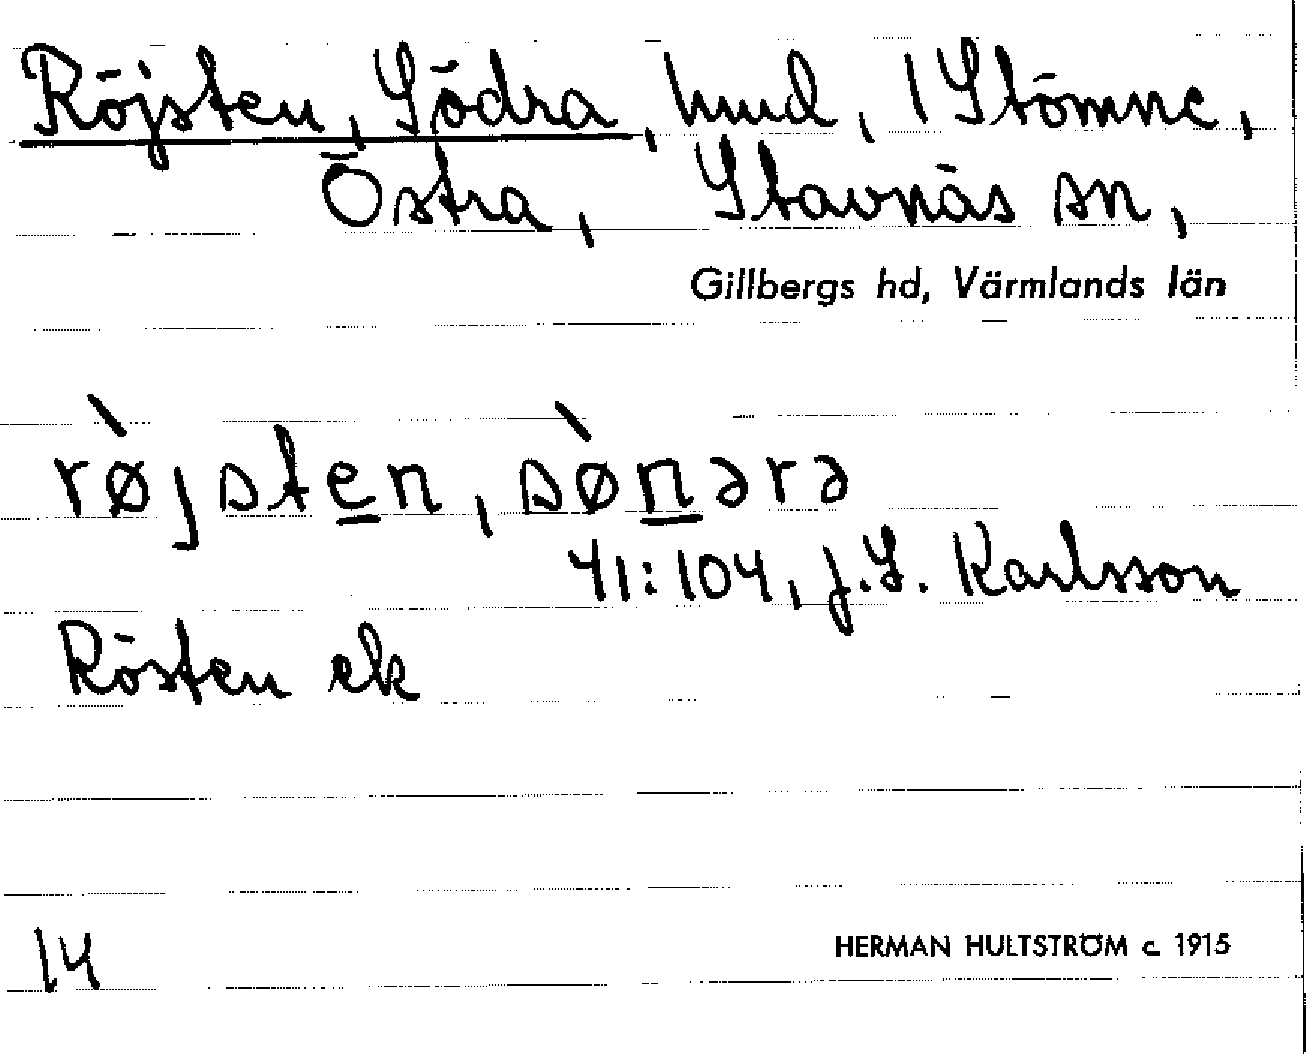 Röjsten, Södra, hmd, 1 Stömne,
Östra, Stavnäs sn,
Gillbergs hd, Värmlands län
rø̀jsten, sø̀nərə
41:104, J.S. Karlsson
Rösten ek
14
HERMAN HULTSTRÖM c. 1915